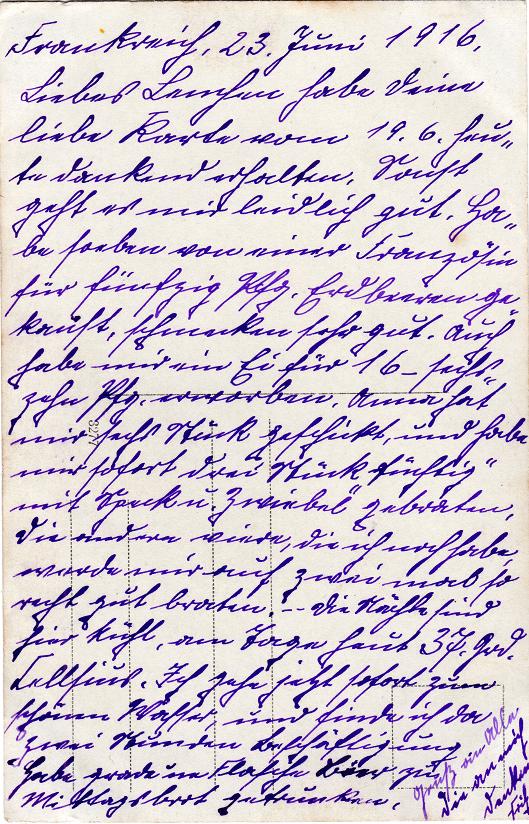 Frankreich, 23. Juni 1916.
Liebes Lenchen habe deine
liebe Karte vom 19. 6. heu„
te dankend erhalten. Sonst
geht es mir leidlich gut. Ha„
be soeben von einer Französin
für fünfzig Pfg. Erdbeeren ge„
kauft, schmecken sehr gut. Auch
habe mir ein Ei für 16 – sechs„
zehn Pfg. erworben. Anna hat
mir sechs Stück geschickt, und habe
mir sofort drei Stück tüchtig"
mit Speck u. Zwiebel" gebraten.
Die andern viere, die ich noch habe,
werde mir auf zwei mal so
recht gut braten. – Die Nächte sind
hier kühl, am Tage heut 37. Grd.
Cellsius. Ich gehe jetzt sofort zum
schönen Wasser und finde ich da
zwei Stunden Beschäftigung
Habe grade ne Flasche Bier zu
Mittagsbrot getrunken.
Gruß an Alle
die an mich
denken
3277